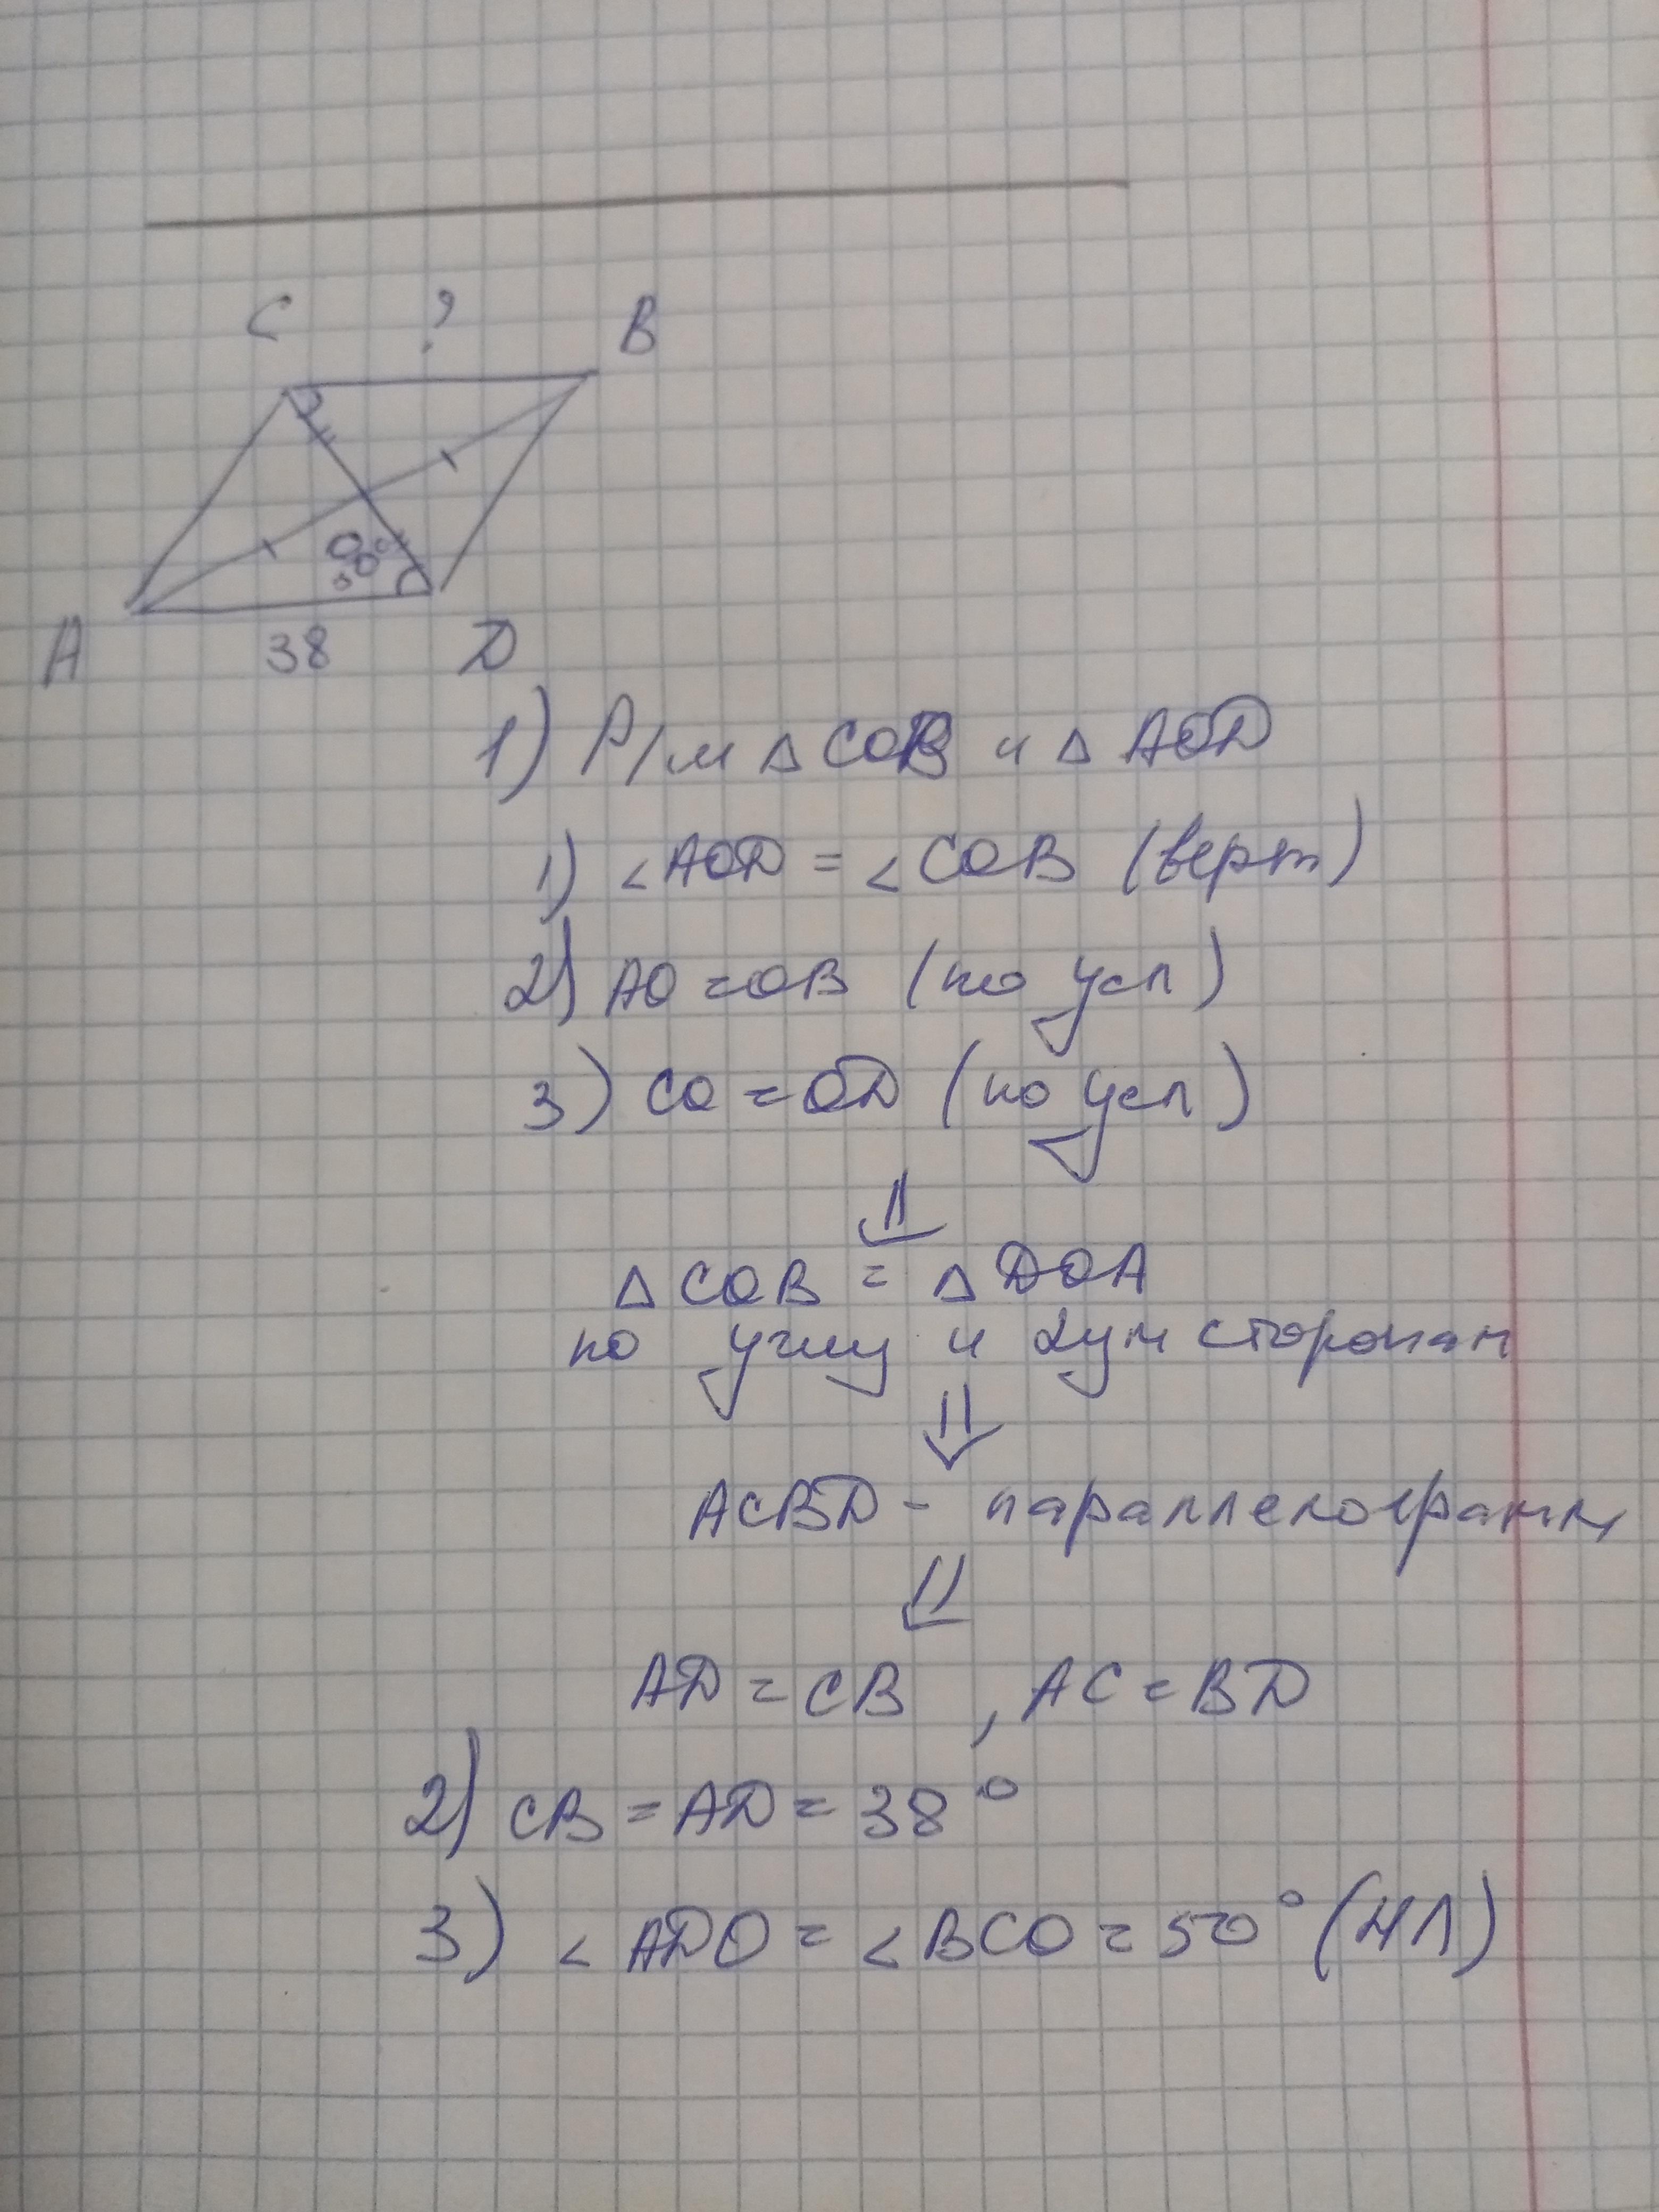 C ? B
O
A 38 D
1) Р/м △ COB и △ AOD
1) ∠AOD = ∠COB (верт)
2) AO = OB (по усл)
3) CO = OD (по усл)
⇓
△ COB = △ DOA
по углу и 2ум сторонам
⇓
ACBD - параллелограмм
⇓
AD = CB , AC = BD
2) CB = AD = 38°
3) ∠ ADO = ∠ BCO = 50° (НЛ)